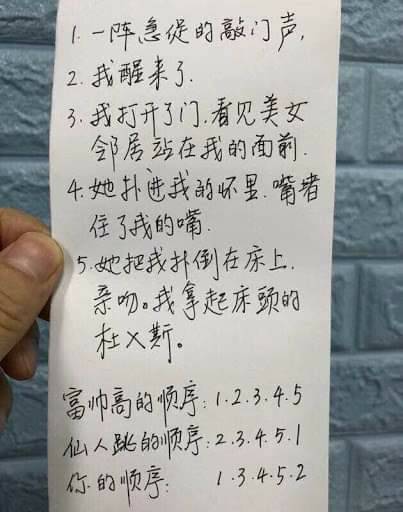 1. 一阵急促的敲门声,
2. 我醒来了.
3. 我打开了门.看见美女
邻居站在我的面前.
4. 她扑进我的怀里.嘴堵
住了我的嘴.
5. 她把我扑倒在床上.
亲吻。我拿起床頭的
杜乂斯。
富帅高的顺序:1.2.3.4.5
仙人跳的顺序:2.3.4.5.1
你的顺序: 1.3.4.5.2